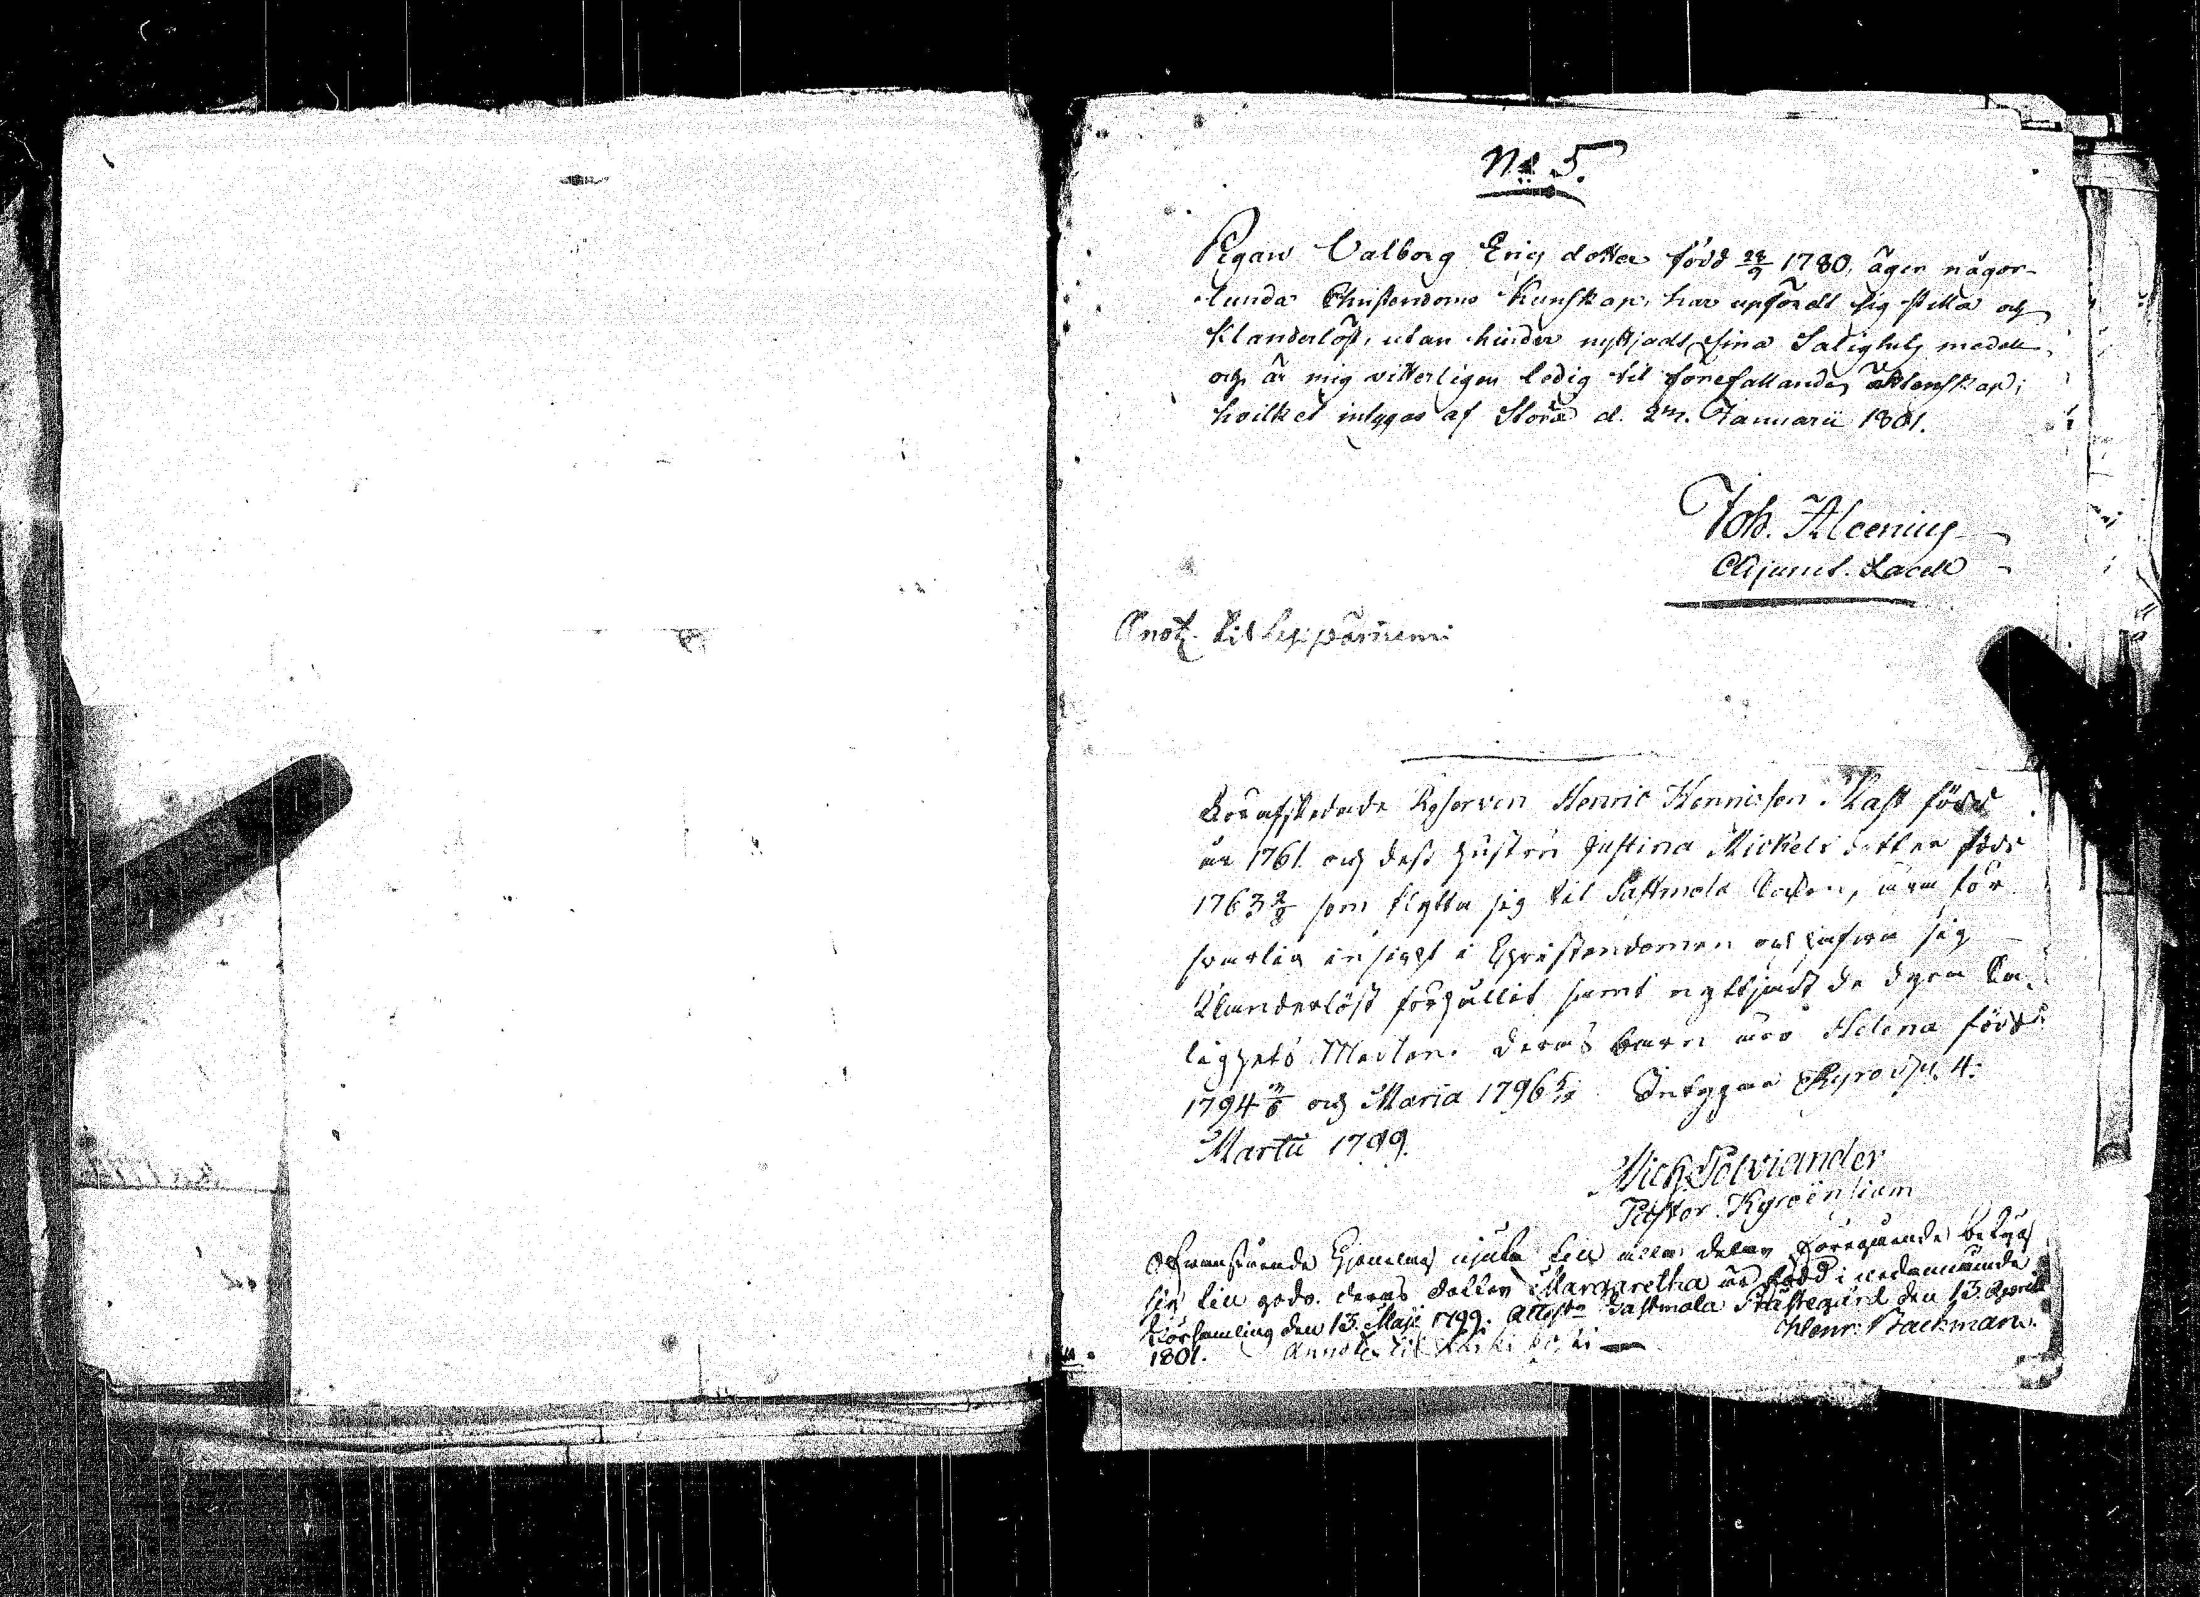 No 5.
Pigan Valborg Erics dotter född 28/9 1780, äger någor-
lunda Christendoms Kunskap, har upfördt sig stilla och
klanderlöst, utan hinder nyttjadt sina Salighets medel,
och är mig vitterligen ledig til förefallande ächtenskap;
hvilket intygas af Storå d. 2m. Januarii 1801.
Joh. Alcenius
Adjunct. Sacell
Anot. til
Bör afskedade Reserven Henric Henricsson Rask född
år 1761 och dess hustru Justina Mickels dotter född
1763 2/8 som flytta sig til Sastmola Socken, äga för
svarlig insigt i Christendomen och hafva sig
Klanderlöst förhållit samt nyttjadt de dyra Sa-
lighets Medlen. Deras barn äro Helena född
1794 och Maria 1796 Intygar Kyro d. 4.
Martii 1799.
Mich. Polviander
Pastor Kyroënsium
Ofvanstående Hjonelag njuta till alla delar föregående betyg
sig till godo. deras dotter Margaretha är född i nedannämnde
Församling den 13 Maji 1799. Attest. Sastmola Prästegård den 13 April
1801. Henr. Backman.
Annot. til